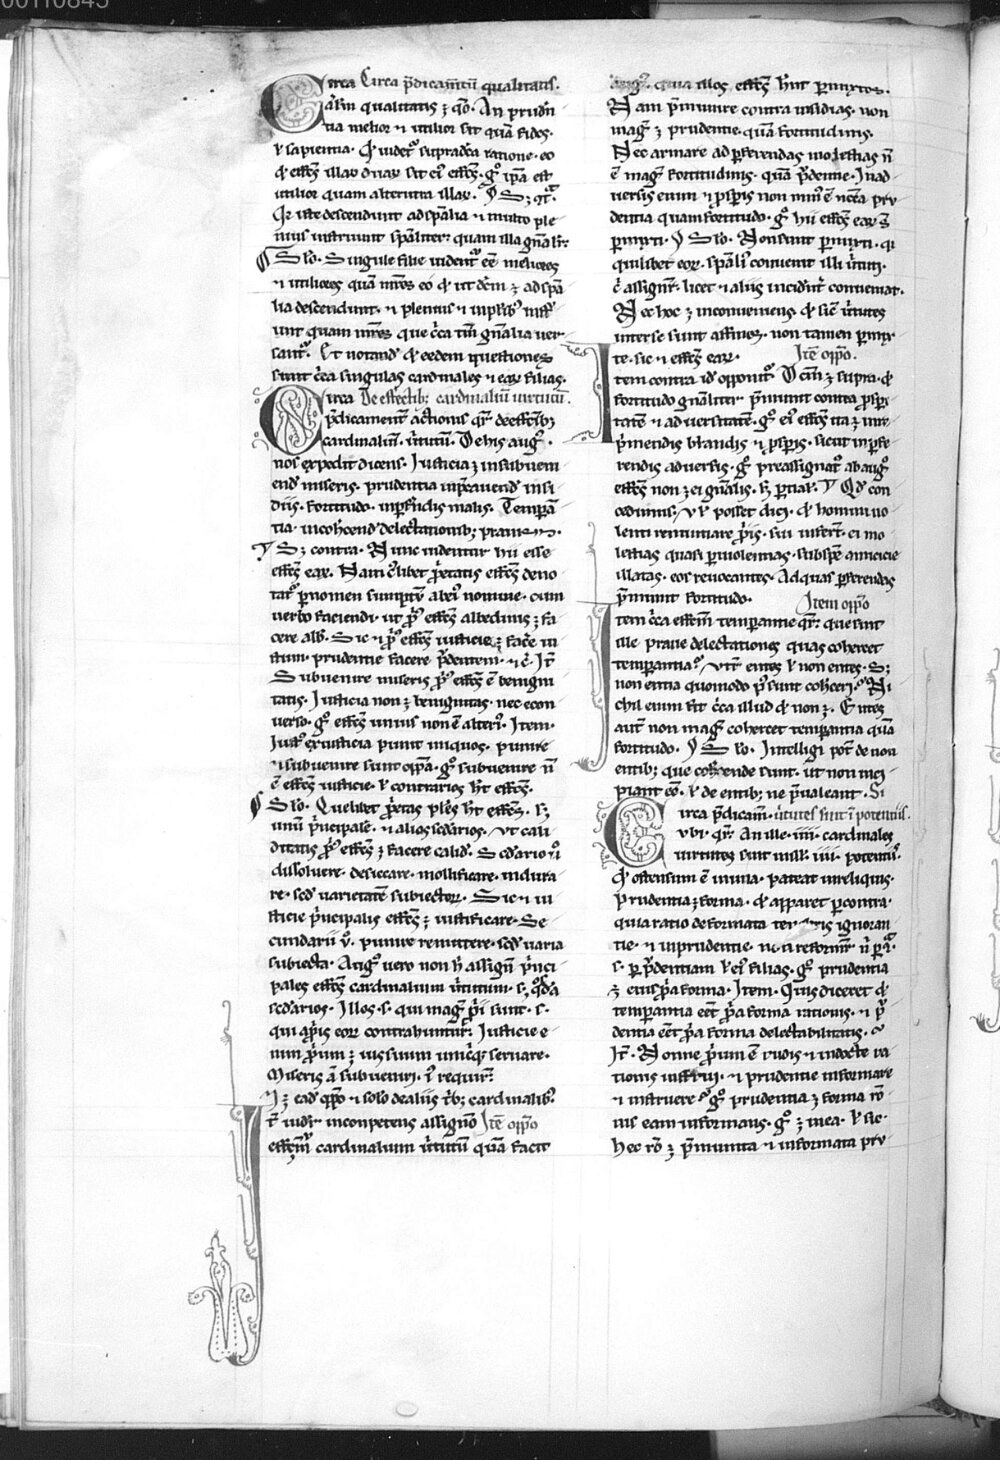 irca Circa p̄dicam̄tū qualitatis.
a̅lem qualitatis ⁊ qo. An pruden
tia melior ⁊ utilior sit quā fides.
ł sapientia. Q uidet᷑ supradc̄a ratione. eo
utilior quam alterutra illar̄.
Qr̄ iste descendunt ad spālia ⁊ multo ple
nius instruunt spāliter quam illa gn̄alr̄.
Sl̄o. Singule filie uident᷑ ee̅ meliores
⁊ utiliores quā mr̄es eo q̄ ut dc̄m ē ad spā
lia descendunt. ⁊ plenius ⁊ in plib᷒ instr̄
unt quam mr̄es que cc̄a tm̄ gn̄alia uer
sant᷑. Et notand̄ q̄ eedem questiones
sunt cc̄a singulas cardinales ⁊ ear̄ filias.
irca De effectib; cardinaliū uirtutū.
p̄dicament̄ actionis qr̄ de effc̄ib;
cardinaliū. ūtutū. De his aug᷒.
nos expedit dicens. Iusticia ē in subueni
end̄ miseris. prudentia in p̄cauend̄ insi
diis. fortitudo. in p̄ferendis malis. Tempan̄
tia. in cohcend̄ delectationib; prauis.
S; contra. Nunc uidentur hii esse
effc̄s ear̄. Nam cl̄ibet p̄etatis effc̄s deno
tat᷑ p̄ nomen sumptū ab ei᷒ nomine. cum
uerbo faciendi. ut p̄᷒ effc̄s albedinis ē fa
cere alb̄. Sic ⁊ p̄᷒ effc̄s iusticie ē facē iu
stum. prudentie facere p̄dentem. ⁊ c̄. It̄
Subuenire miseris p̄᷒ effc̄s ē benigni
tatis. Iusticia non ē benignitas. nec econ
uerso. g᷒ effc̄s unius non ē alteri᷒. Item.
Iust᷒ ex iusticia punit iniquos. punire
⁊ subuenire sunt opp̄a. g᷒ subuenire n̄
ē effc̄s iusticie. ł contrarios ht̄ effc̄s.
Sl̄o. Quelibet p̄etas ples ht̄ effc̄s. s;
unū p̄ncipalē. ⁊ alios sc̄darios. Ut cali
ditatis p̄᷒ effc̄s ē facere calid̄. Sc̄dario ū
dissoluere. desiccare. mollificare. indura
re. sc̄d uarietatē subiector̄. Sic ⁊ iu
sticie p̄ncipalis effc̄s ē iustificare. Se
cundarii ū. punire remittere. sc̄d uaria
subiecta. Aug᷒ uero non h̄ assign̄ p̄nci
pales effc̄s cardinalium ūtutum. s; q̄dā
sc̄darios. Illos. s. qui mag᷒ p̄i sunt. s.
qui a p̄is eor̄ contrahuntur. Iusticie e
nim p̄rium ē ius suum unicuiq; seruare.
Miseris at̄ subueniri.
cardinalib᷒.
r̄ uidr̄ incompetens assignō Itē oppō
effc̄m̄ cardinalium ūtutū quā facit
aug᷒. quia illos effc̄s hn̄t p̄mixtos.
Nam p̄munire contra insidias. non
mag᷒ ē prudentie. quā fortitudinis.
Nec armare ad p̄ferendas molestias n̄
ē mag᷒ fortitudinis. quā p̄dentie. In ad
uersis enim ⁊ p̄spis non min᷒ ē nc̄c̄a pru
dentia quam fortitudo. g᷒ hii effc̄s ear̄ s̄
p̄mixti. Sl̄o. Non sunt p̄mixti. q̄
quilibet eor̄. spāli᷑ conuenit illi ūtuti.
c̄ assignr̄. licet ⁊ aliis incidnt̄ conueniat.
Nec hoc ē inconueniens. q̄ sic̄ ūtutes
inter se sunt affines. non tamen p̄mix
te. sic ⁊ effc̄s ear̄. Itē oppō.
tem contra id opponit᷑. Dc̄m ē supra. q̄
fortitudo gn̄aliter p̄munit contra p̄spi
tatē ⁊ aduersitatē. g᷒ ei᷒ effc̄s ita ē in re
p̄mendis blandis ⁊ p̄spis. sicut in p̄fe
rendis aduersis. g᷒ preassignat᷑ ab aug᷒
effc̄s non ē ei gn̄alis. s; partial̄. Qd̄ con
cedimus. Ul posset dici. q̄ homini uo
lenti renuntiare p̄is. sui infert. ei mo
lestias quasi p̄ uiolentias. sub spē amicicie
illatas. eos reuocantes. Ad quas p̄ferendas
p̄munit fortitudo. Item oppō
tem cc̄a effc̄m temperantie qr̄. que sint
ille praue delectationes quas cohercet
temperantia. Utr̄ entes ł non entes. S;
non entia quomodo p̄sunt coherceri. Ni
chil enim sit cc̄a illud q̄ non ē. Entes
aut̄ non mag᷒ cohercet temperantia quā
fortitudo. Sl̄o. Intelligi pot̄ de non
entib; que cohercende sunt. ut non inci
piant ee̅. ł de entib; ne p̄ualeant. Si
irca p̄dicam̄. ūtutes sint ī potentiis.
ubi. qr̄. An ille. iiii. cardinales
uirtutes sint in ill̄. iiii. potentiis.
q̄ ostensum ē in una. pateat in reliquis.
Prudentia ē forma. q̄ apparet p̄ contra.
quia ratio deformata tenebris ignoran
tie. ⁊ inprudentie. non reformr̄ n̄
s. p̄ p̄dentiam ł ei᷒ filias. g᷒ prudentia
ē eius p̄a forma. Item. Quis diceret q̄
temperantia eēt p̄a forma rationis. ⁊ p̄
dentia eēt p̄a forma delectabilitatis.
It̄. Nonne p̄rium ē rudis ⁊ indocte ra
tionis instrui. ⁊ prudentie informare
⁊ instruere. g᷒ prudentia ē forma rō
nis eam informans. g᷒ ē in ea. ł sic.
hec rō ē p̄munita ⁊ informata pru